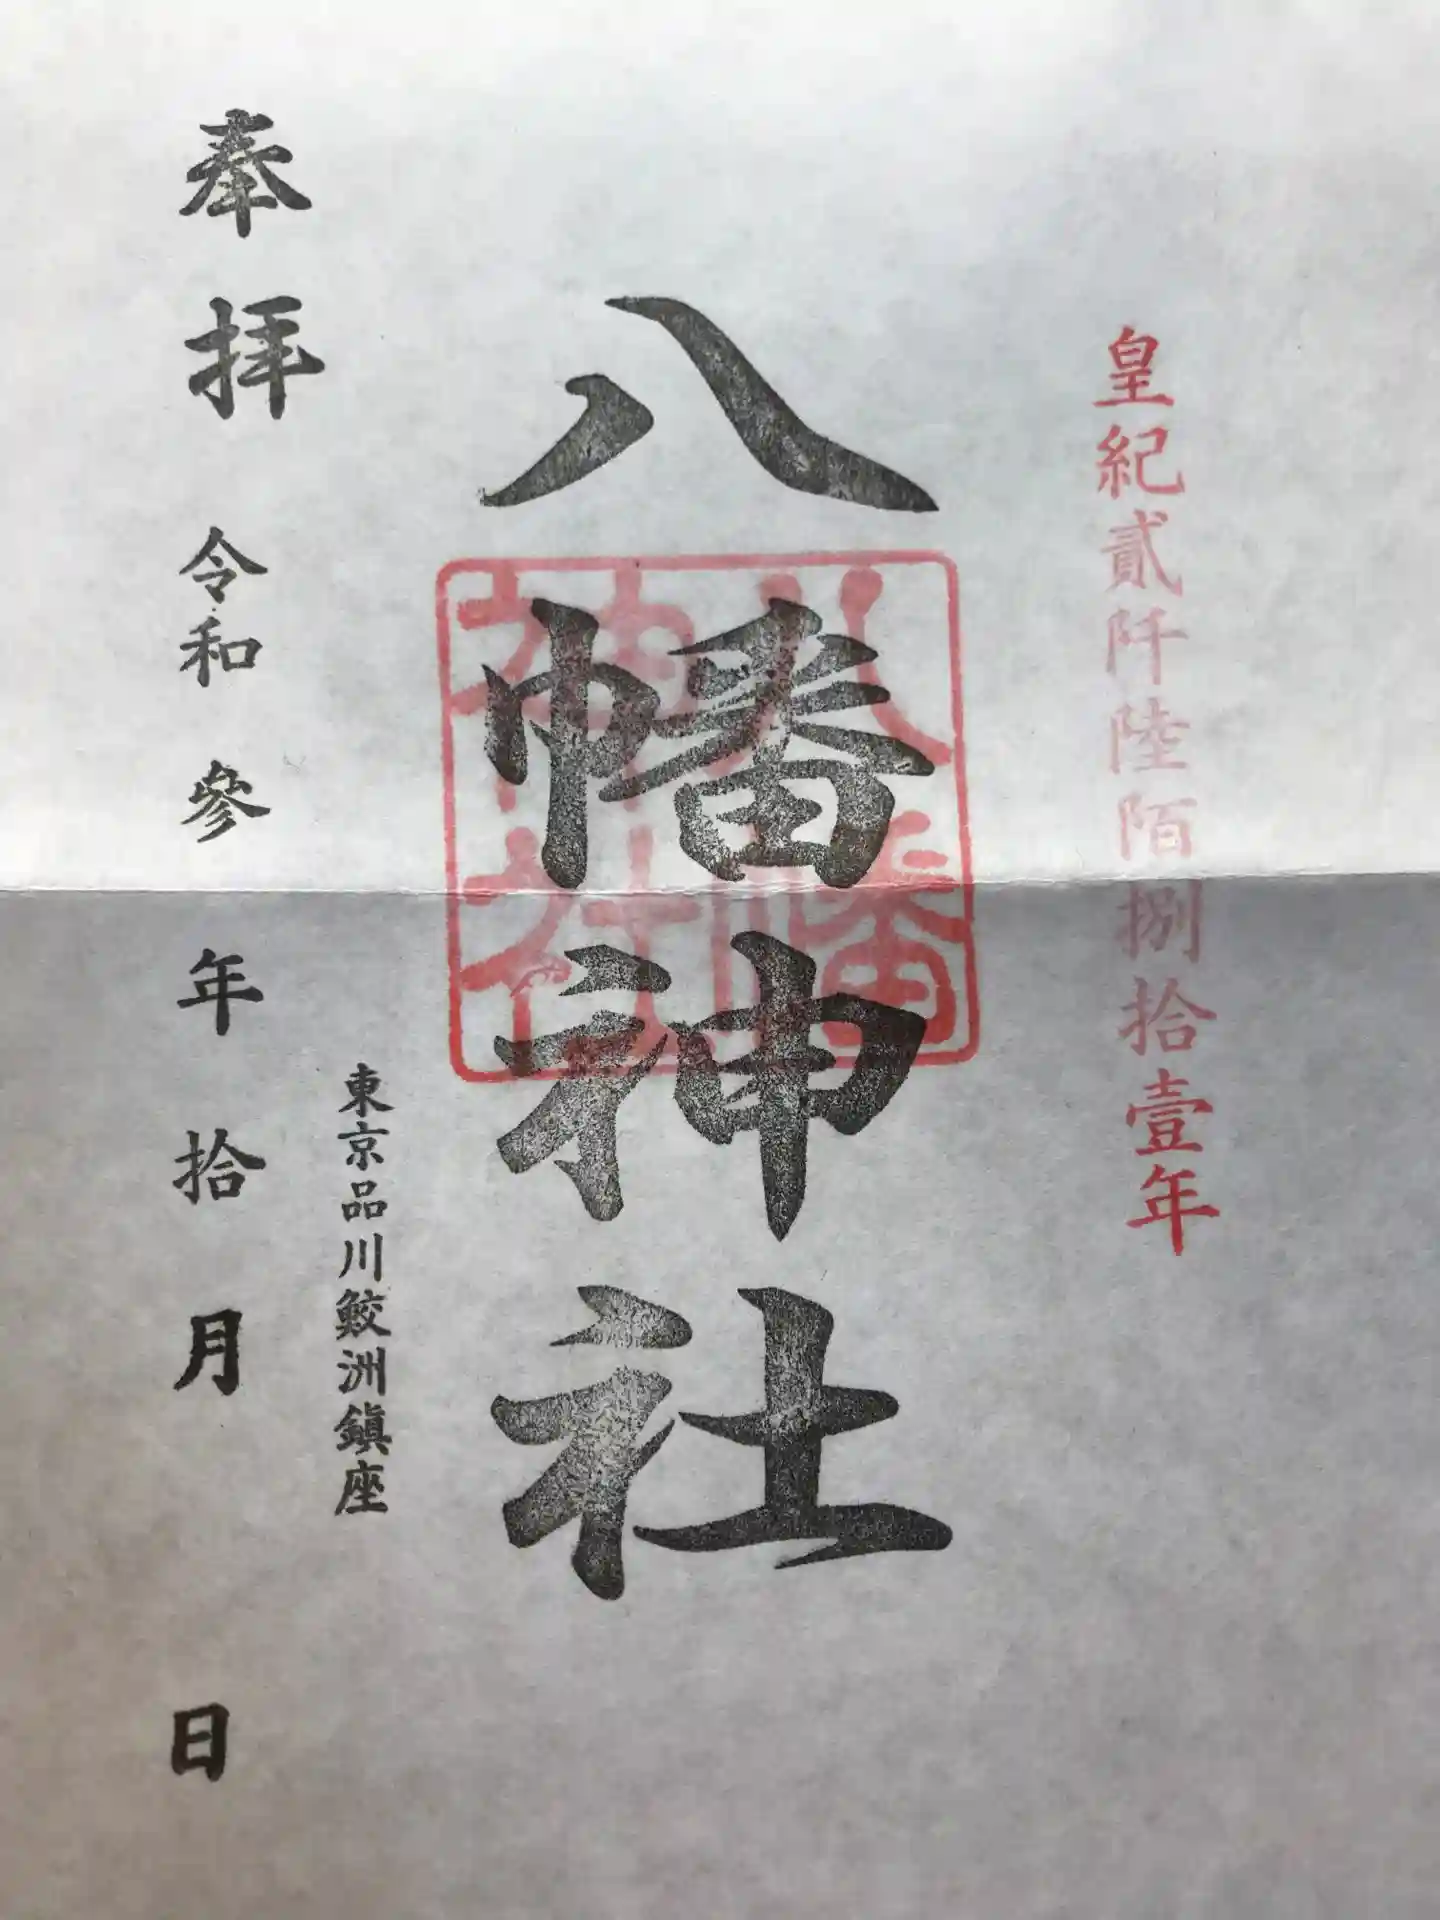 皇紀貳阡陸陌捌拾壹年
八幡神社
八幡
神社
東京品川鮫洲鎮座
奉拝 令和參年拾月 日